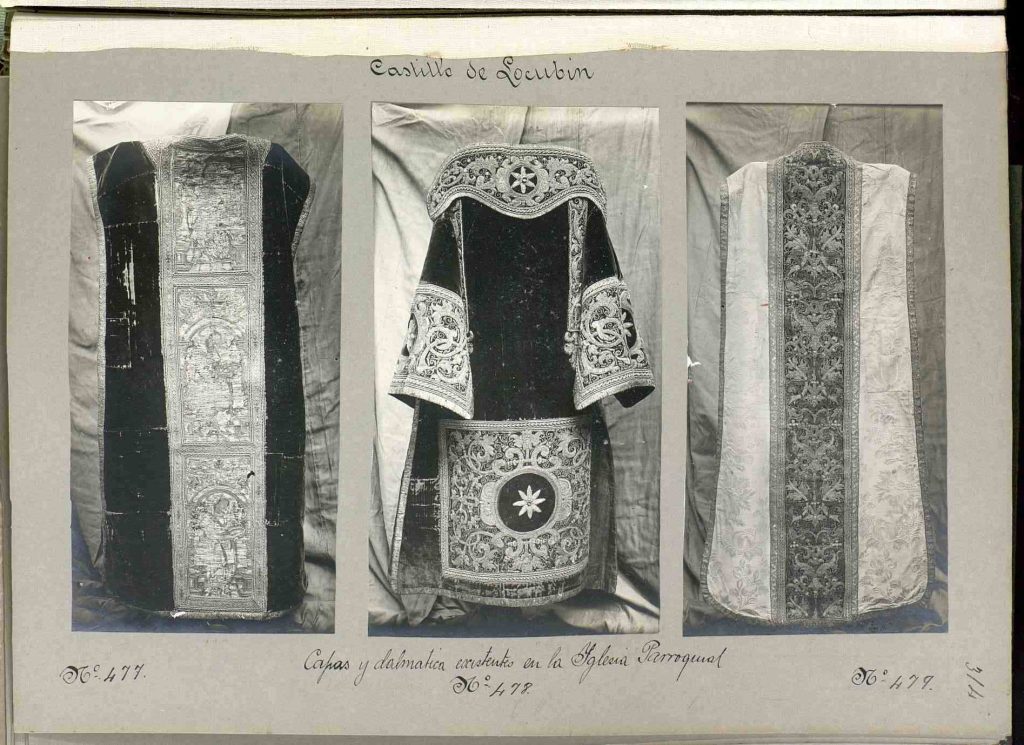 Castillo de Locubin
Capas y dalmatica existentes en la Iglesia Parroquial
Nº 477.
Nº 478.
Nº 479.
314